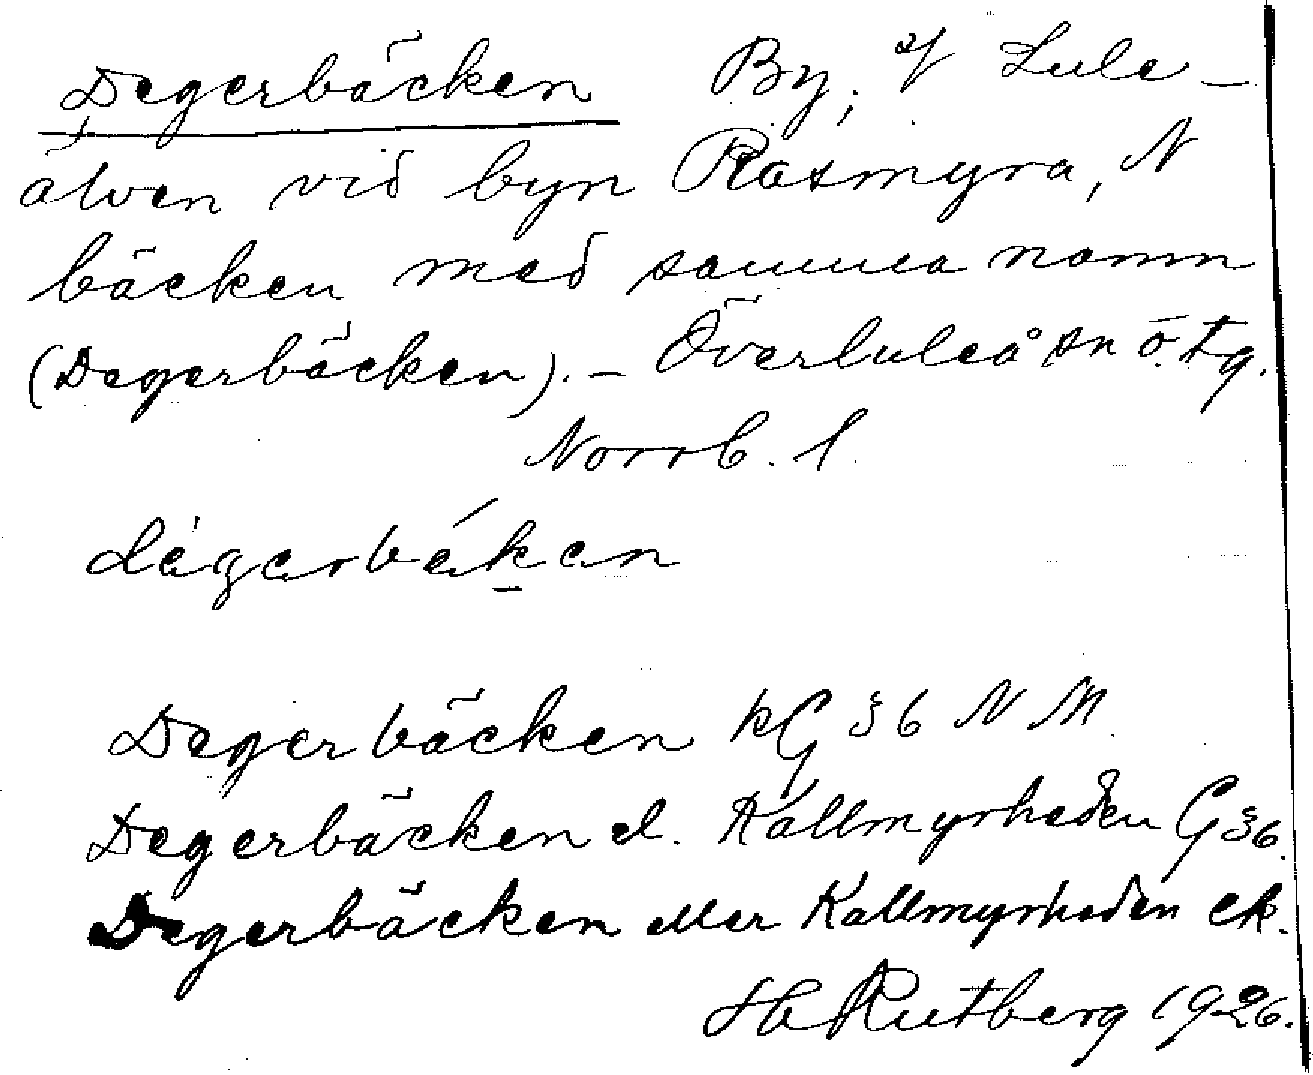 Degerbäcken By, V Lule-
älven vid byn Råsmyra, N
bäcken med samma namn
(Degerbäcken). - Överluleå sn ö. tg.
Norrb. l.
dégerbä́ken
Degerbäcken kG 36 N M.
Degerbäcken el. Kallmyrheden G 36.
Degerbäcken eller Kallmyrheden ek.
Hb Rutberg 1926.